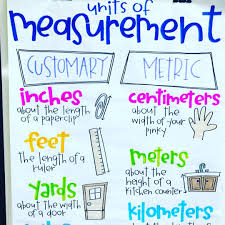 units of
measurement
CUSTOMARY
METRIC
inches
about the length
of a paperclip
feet
the length of a
ruler
yards
about the width
of a door
centimeters
about the
width of your
pinky
meters
about the
height of a
kitchen counter
kilometers